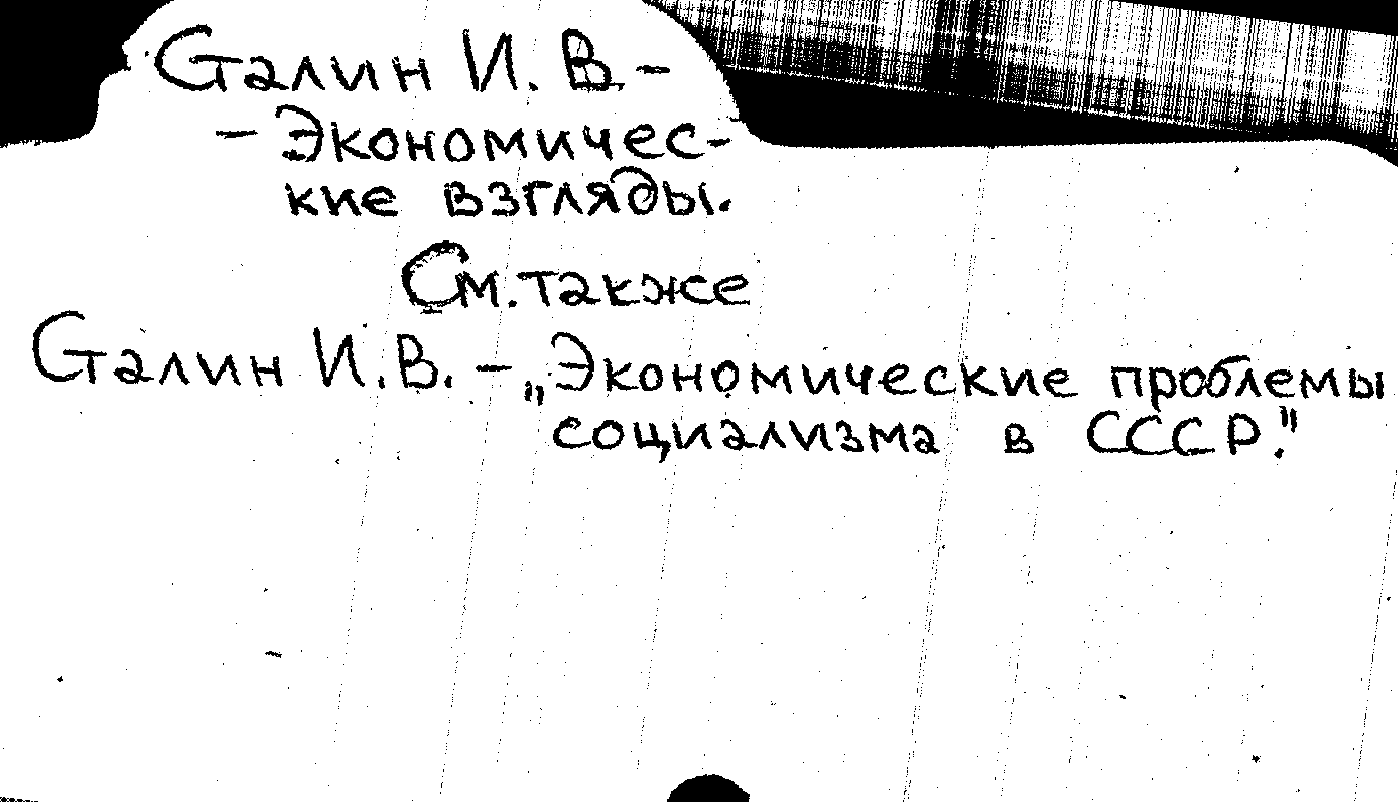 Сталин И. В. –
– Экономичес-
кие взгляды.
См. также
Сталин И. В. – „Экономические проблемы
социализма в СССР."